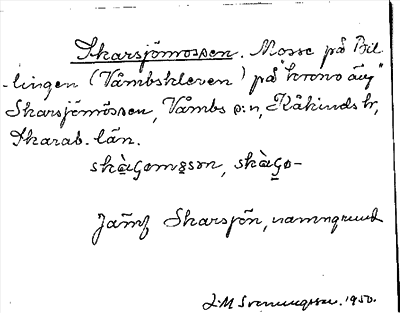 Skarsjömossen. Mosse på Bil
-lingen (Våmbskleven) på "krono äng"
Skarsjömossen, Våmbs s:n, Kåkinds hr,
Skarab. län.
skàgomson, skàgo-
Jämf Skarsjön, namngrund
J.M Svenungsson. 1950.